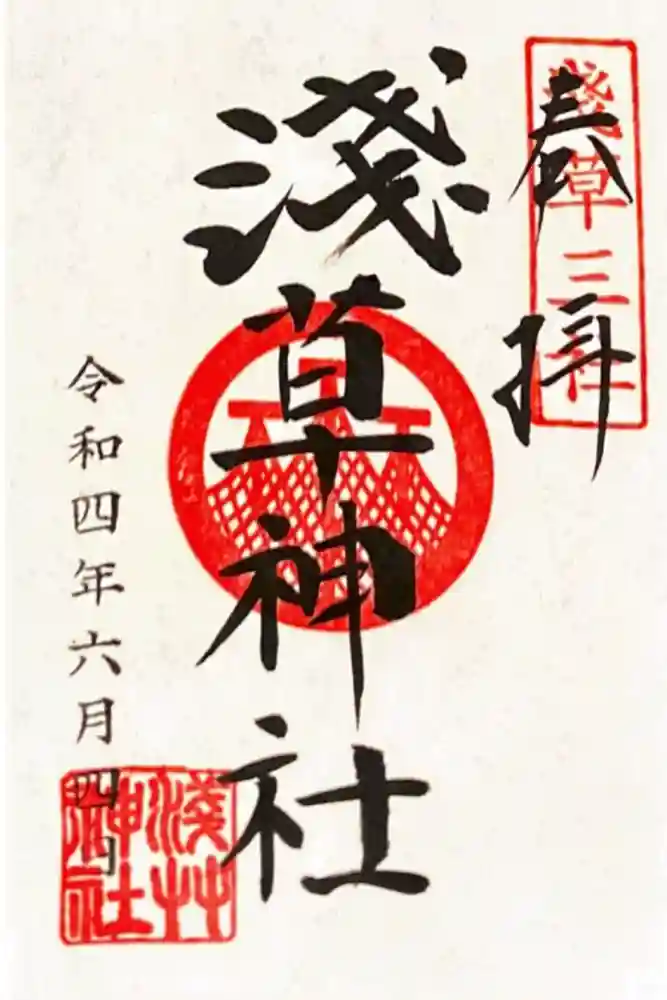 奉拝
淺草三社
淺草神社
令和四年六月四日
淺草神社